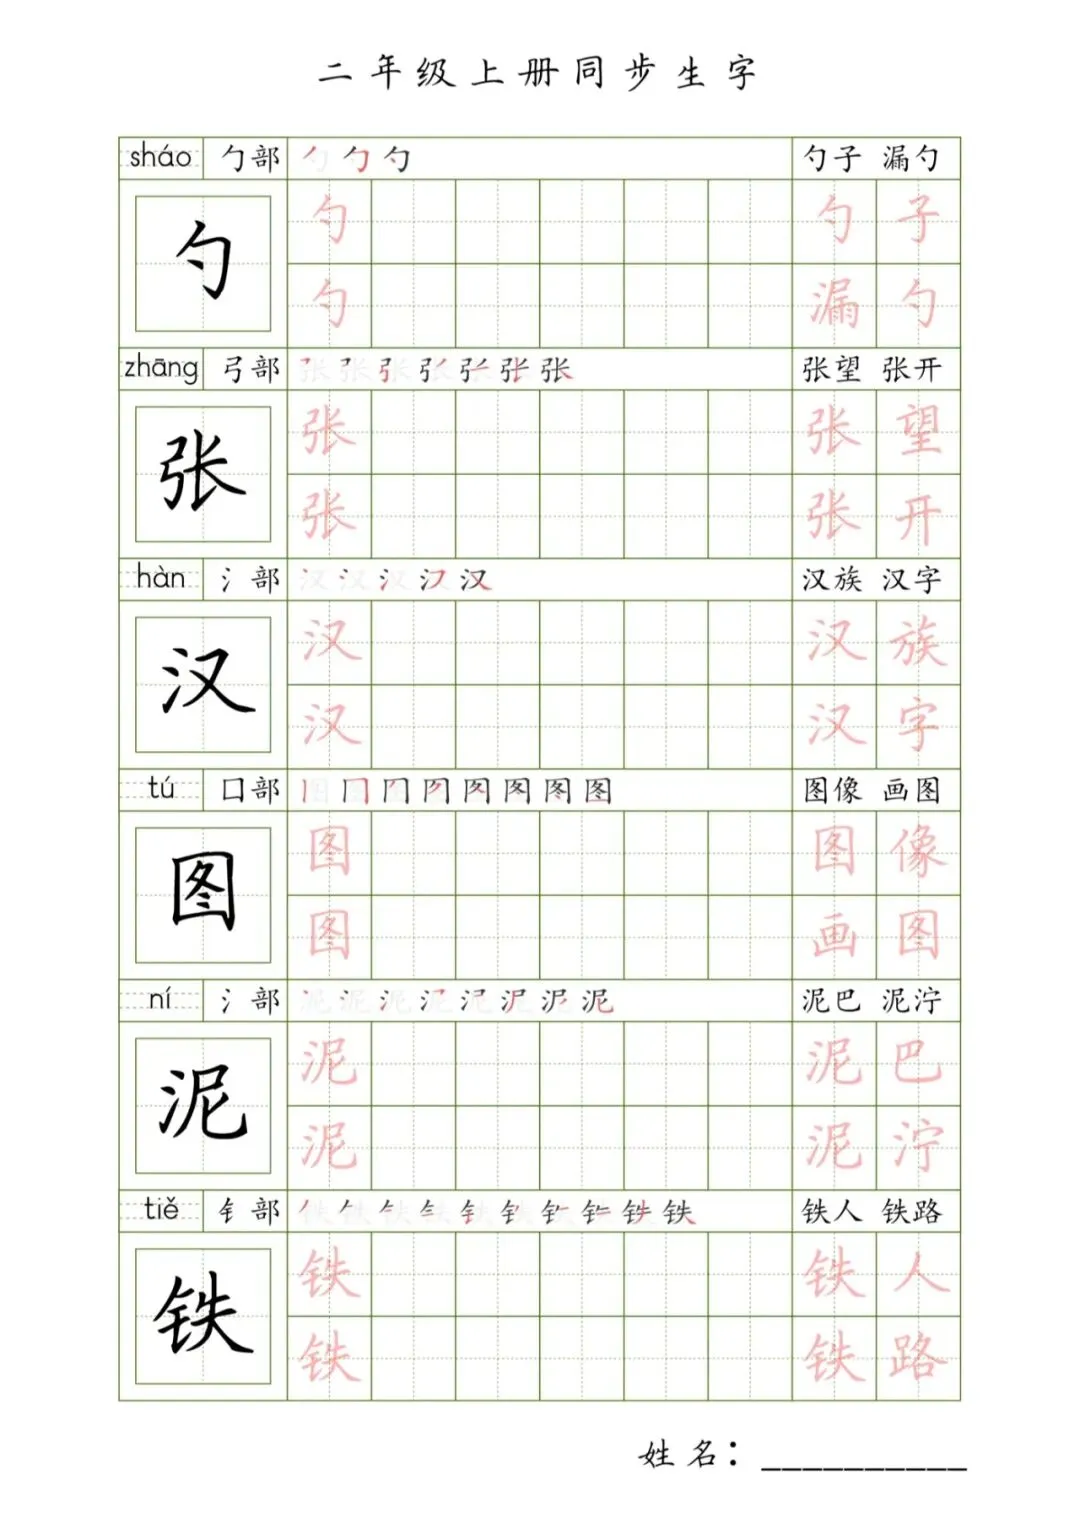 二年级上册同步生字
sháo 勹部 勺勺勺 勺子 漏勺
勺 勺 勺 子
勺 漏 勺
zhāng 弓部 张张张张张张张 张望 张开
张 张 张 望
张 张 开
hàn 氵部 汉汉汉汉汉 汉族 汉字
汉 汉 汉 族
汉 汉 字
tú 囗部 图图图图图图图图 图像 画图
图 图 图 像
图 画 图
ní 氵部 泥泥泥泥泥泥泥泥 泥巴 泥泞
泥 泥 泥 巴
泥 泥 泞
tiě 钅部 铁铁铁铁铁铁铁铁铁铁 铁人 铁路
铁 铁 铁 人
铁 铁 路
姓名：__________